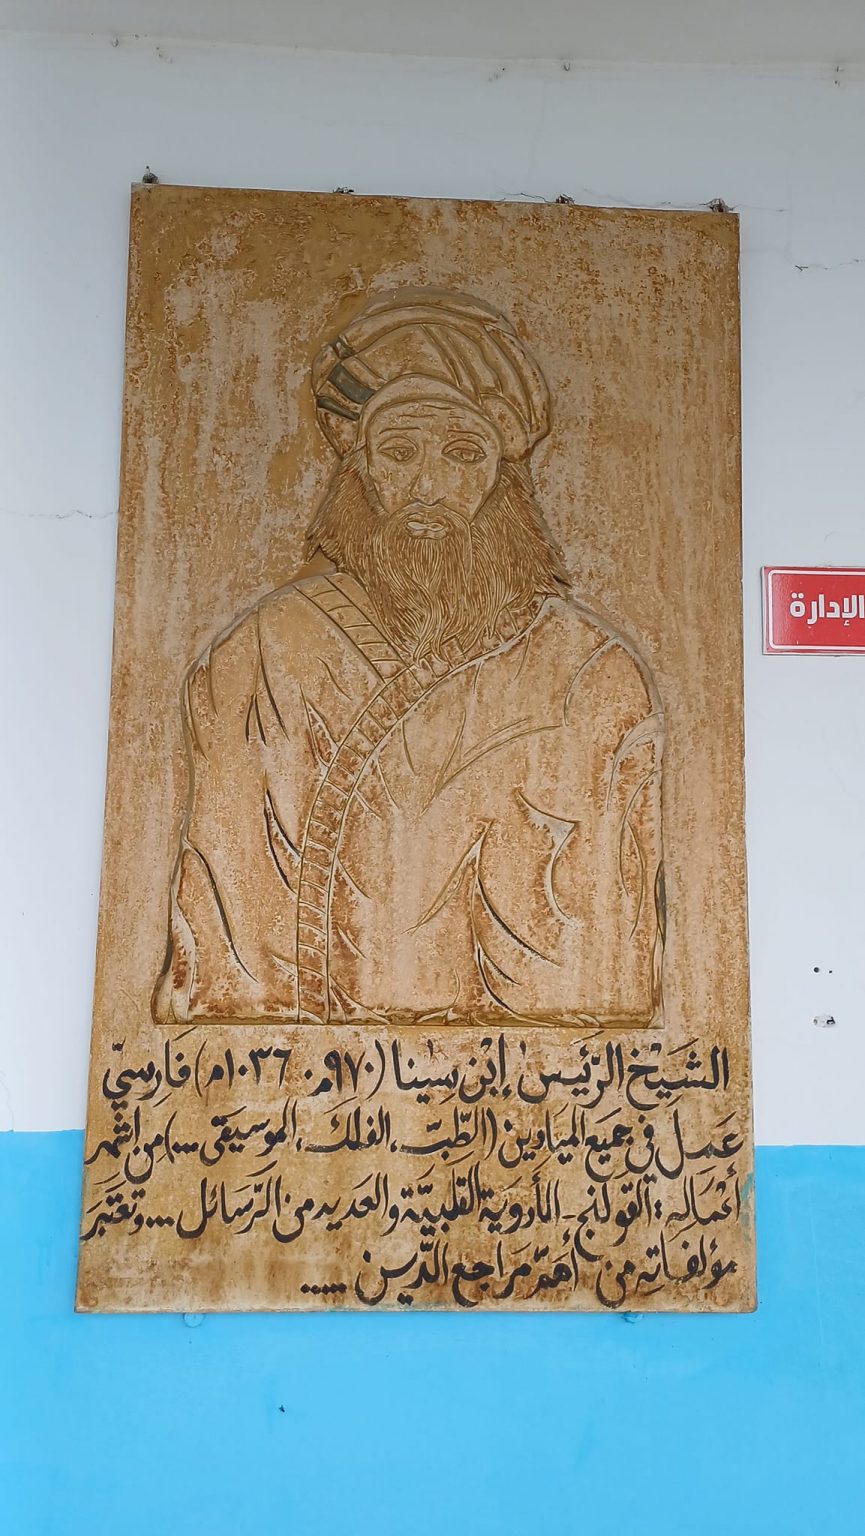 الشَّيْخ الرَّئيس إبْن سِينا (٩٧٠م. ١٠٣٦م) فَارِسيّ
عَمَل في جميَع الميَادين (الطِّبّ، الفلَك، الموسيَقى...) مِن اشهر
أعْمَالِه: القولنج - الأَدويَة القَلبيَّة والعَديد من الرَّسَائل ... وتعْتَبَر
مؤلفاتِه من أهَمّ مَراجع الدّين .....
الإدارة